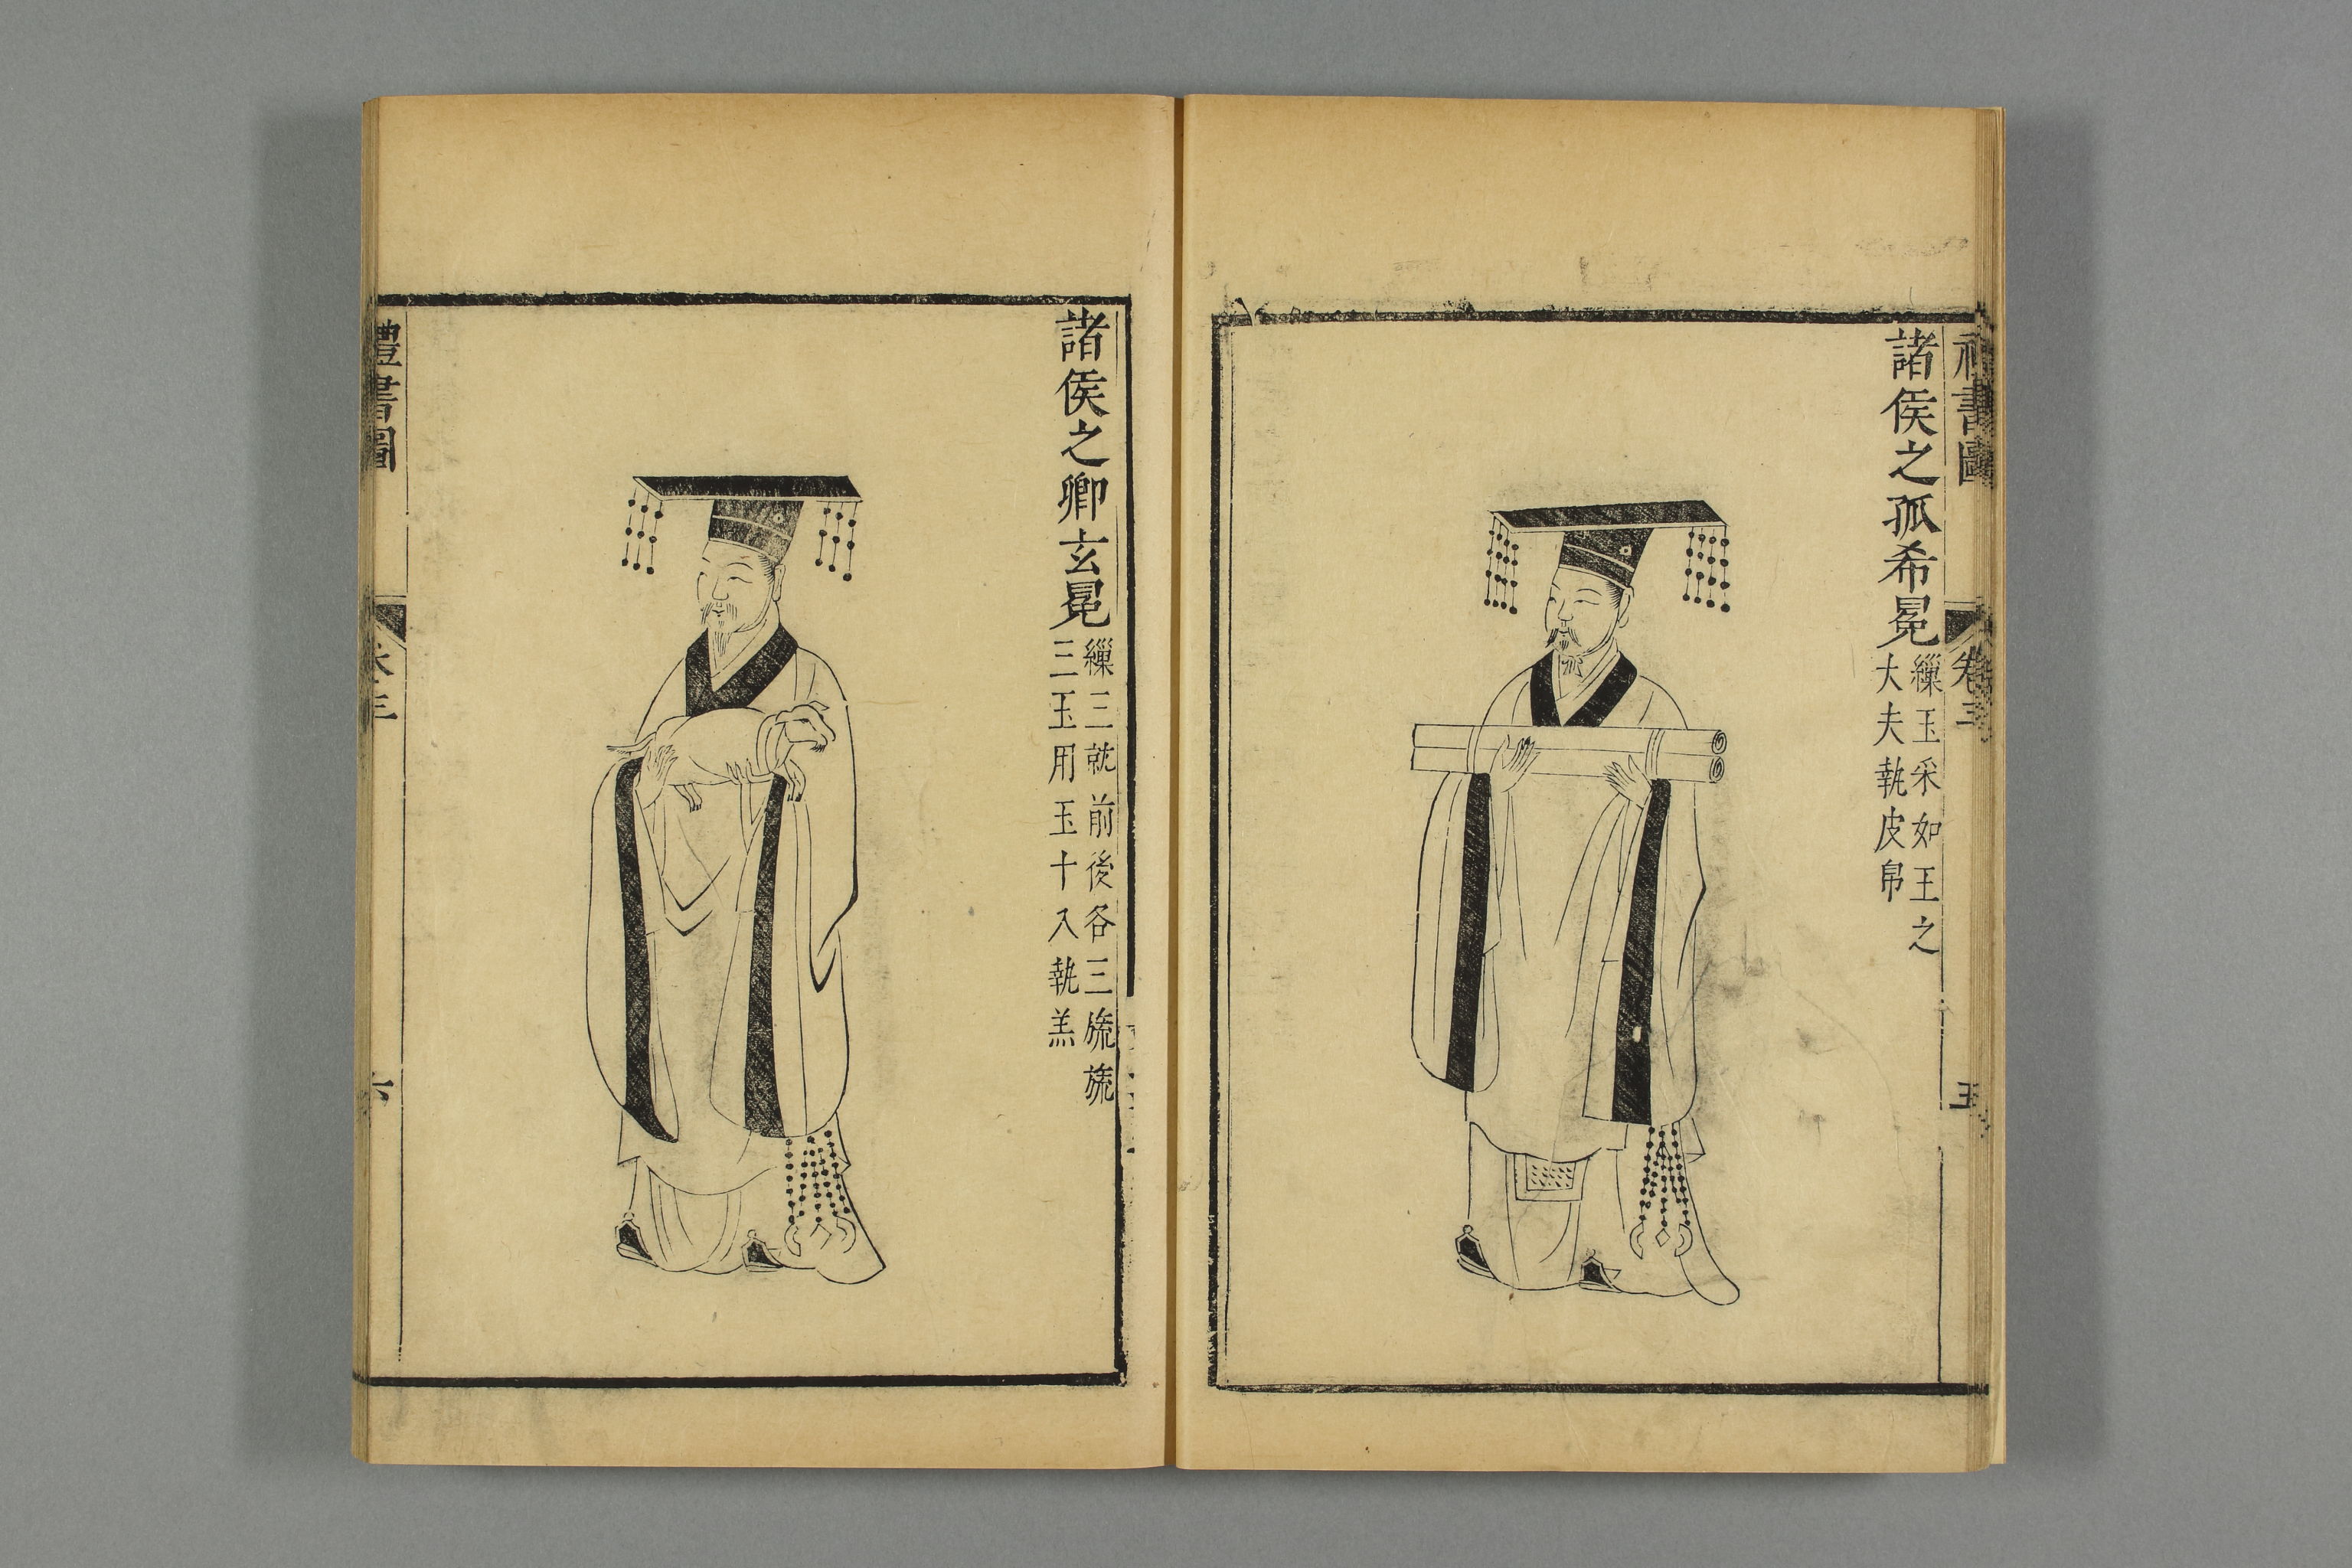 禮書圖
卷三
五
諸侯之孤希冕
繅玉采如王之
大夫執皮帛
諸侯之卿玄冕
繅三就前後各三旒旒
三玉用玉十八執羔
禮書圖
卷三
六